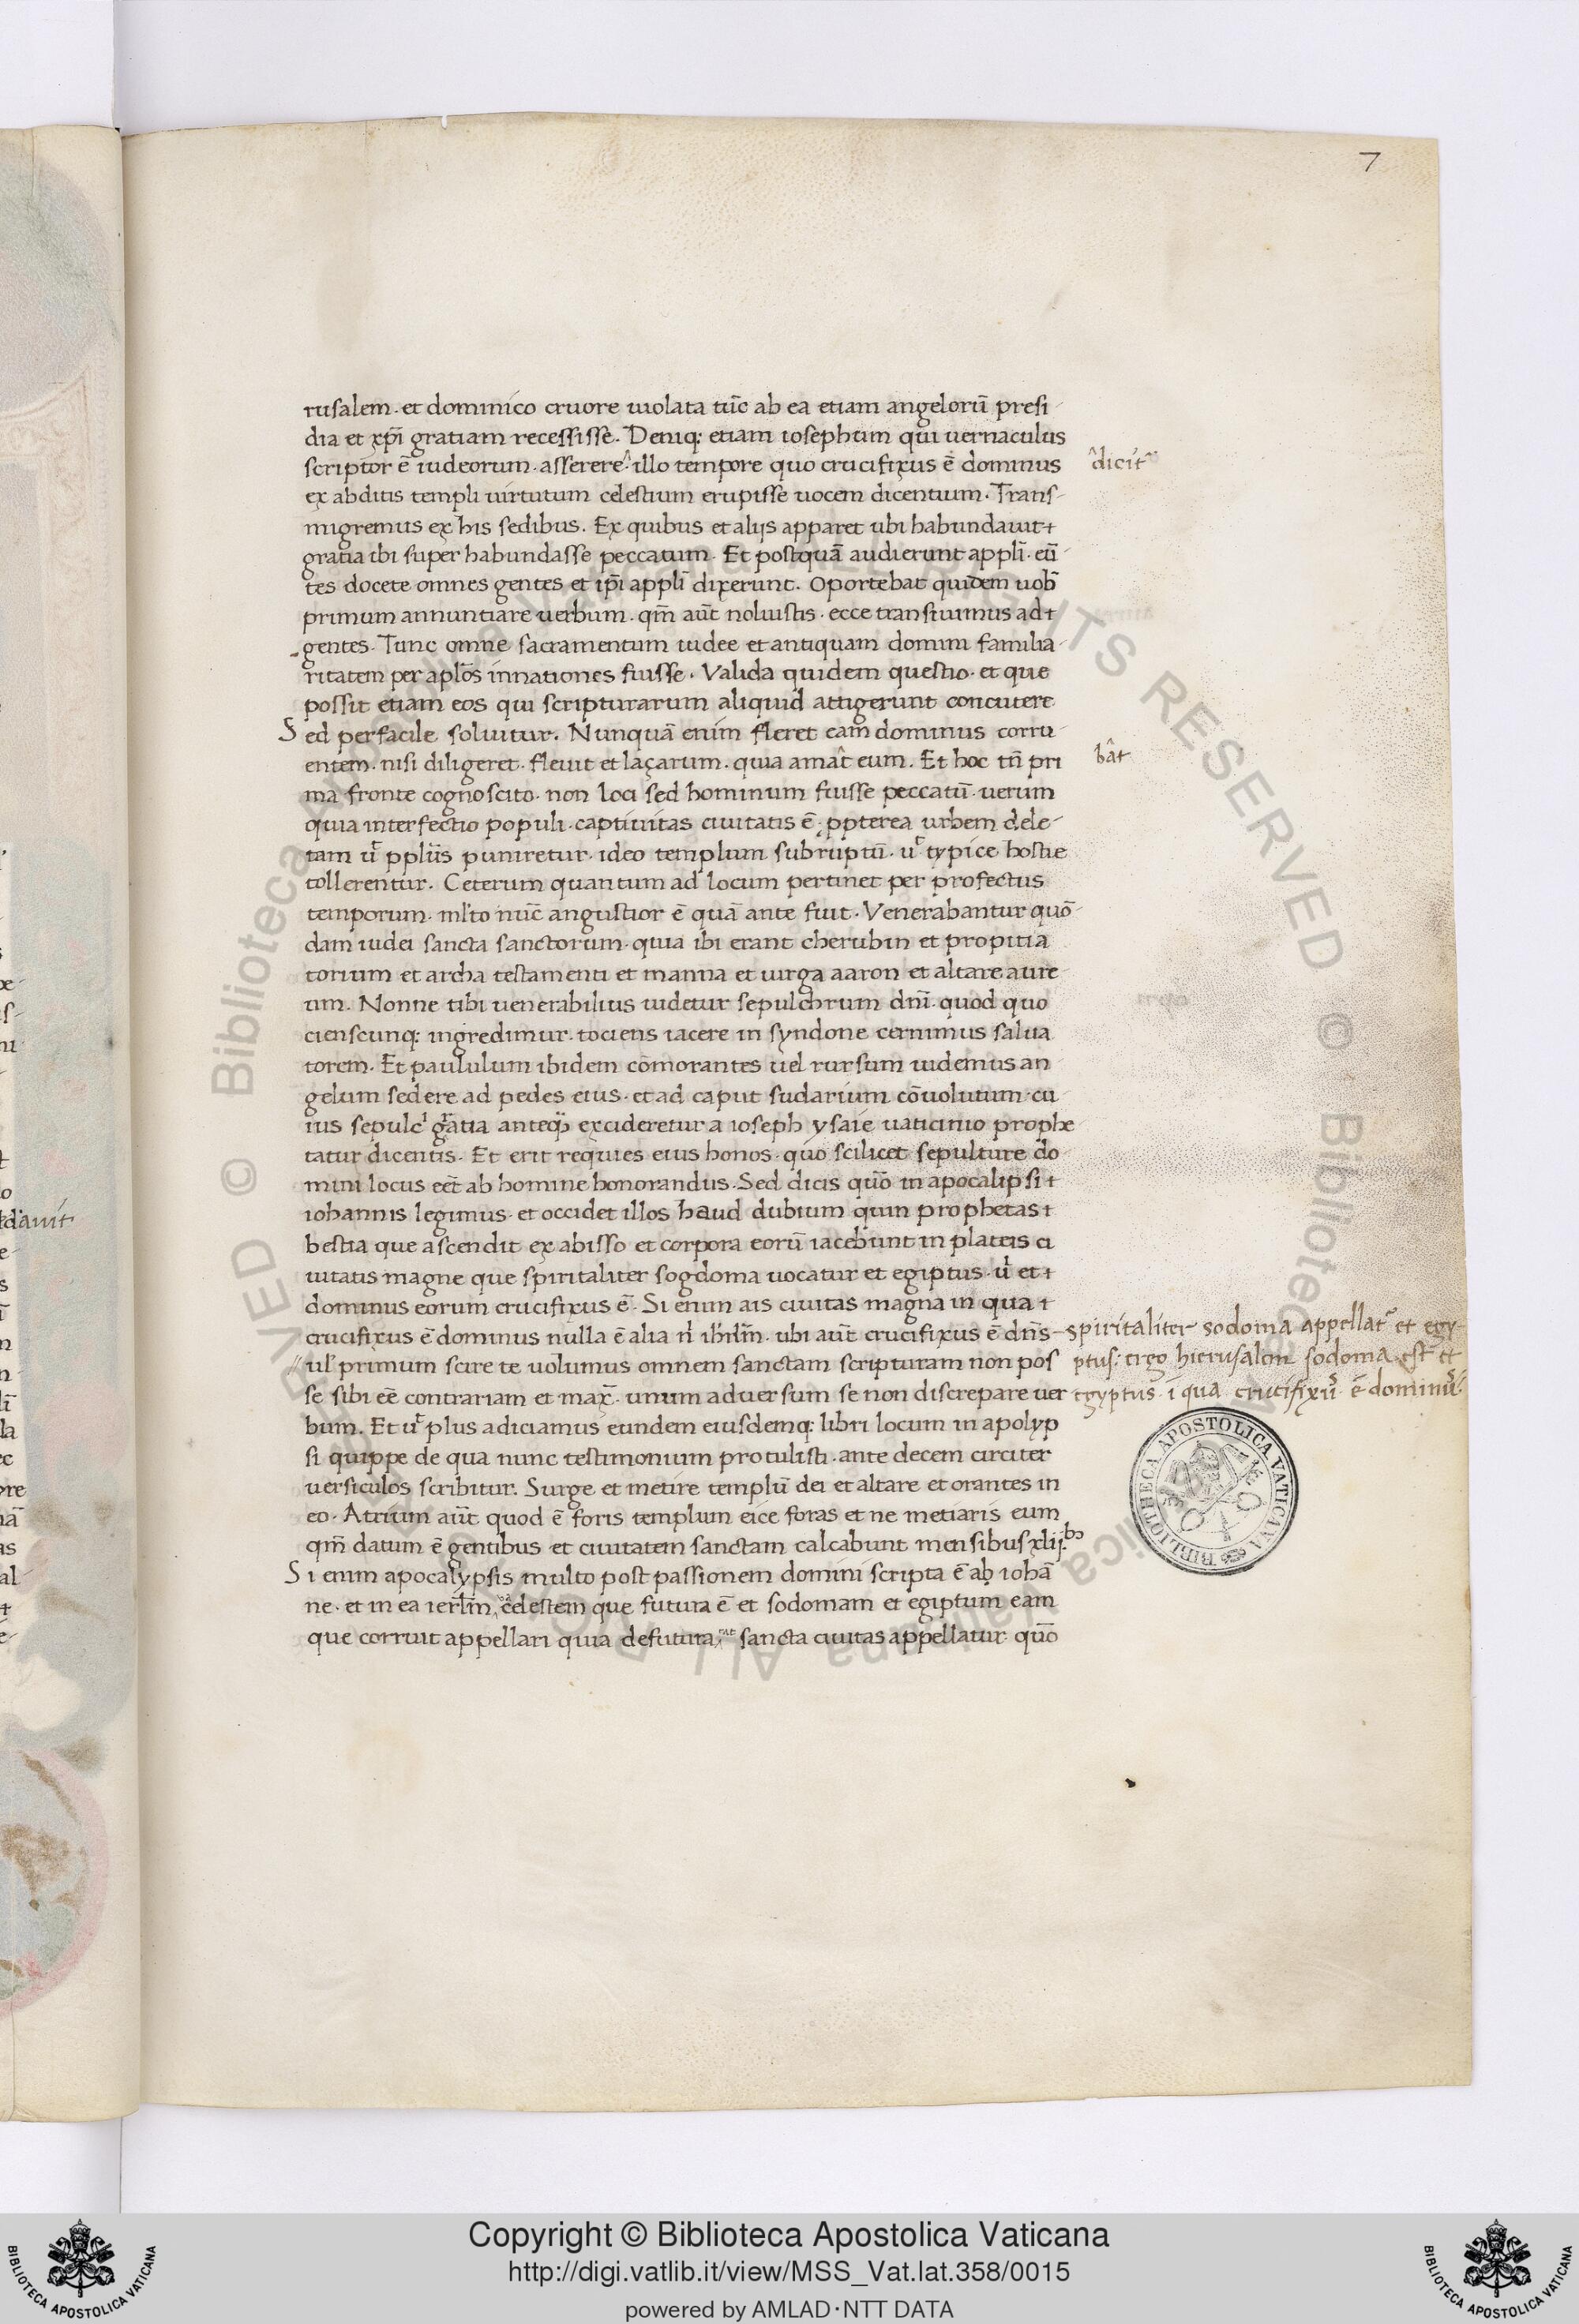 7
rusalem · et dominico cruore uiolata tūc ab ea etiam angelorū presi-
dia et xp̄i gratiam recessisse. Deniq; etiam iosephum qui uernaculus
scriptor ē iudeorum · asserere ^ illo tempore quo crucifixus ē dominus
^dicit
ex abditis templi uirtutum celestium erupisse uocem dicentium. Trans-
migremus ex his sedibus. Ex quibus et alijs apparet ubi habundauit
gratia ibi super habundasse peccatum. Et postquā audierunt appl̄i. eū-
tes docete omnes gentes et ip̄i appl̄i dixerunt. Oportebat quidem uob̄
primum annuntiare uerbum. qm̄ aūt noluistis. ecce transiuimus ad
gentes. Tunc omne sacramentum iudee et antiquam domini familia-
ritatem per aplōs in nationes fuisse. Valida quidem questio. et que
possit etiam eos qui scripturarum aliquid attigerunt concutere
Sed perfacile soluitur. Nunquā enim fleret eam dominus corru-
entem. nisi diligeret. fleuit et laçarum. quia amat̂ eum. Et hoc tn̄ pri
bât
ma fronte cognoscito. non loci sed hominum fuisse peccatū. uerum
quia interfectio populi. captiuitas ciuitatis ē. ppterea urbem dele-
tam ut pplūs puniretur. ideo templum subruptū. ut typice hostie
tollerentur. Ceterum quantum ad locum pertinet per profectus
temporum. ml'to nūc angustior ē quā ante fuit. Venerabantur quō-
dam iudei sancta sanctorum. quia ibi erant cherubin et propitia
torium et archa testamenti et manna et uirga aaron et altare aure-
um. Nonne tibi uenerabilius uidetur sepulchrum dn̄i. quod quo
cienscunq; ingredimur. tociens iacere in syndone cernimus salua
torem. Et paululum ibidem cōmorantes uel rursum uidemus an-
gelum sedere ad pedes eius. et ad caput sudarium cōuolutum. cu
ius sepulcͥ gratia anteq excideretur a ioseph ysaie uaticinio prophe-
tatur dicentis. Et erit requies eius honos. quo scilicet sepulture do
mini locus eēt ab homine honorandus. Sed dicis quō in apocalipsi
iohannis legimus. et occidet illos haud dubium quin prophetas
bestia que ascendit ex abisso et corpora eorū iacebunt in plateis ci
uitatis magne que spiritaliter sogdoma uocatur et egiptus. uͥ et
dominus eorum crucifixus ē. Si enim ais ciuitas magna in qua
crucifixus ē dominus nulla ē alia nͥ ihrl̄m. ubi aūt crucifixus ē dn̄s
-spiritaliter sodoma appellat̄ et egy-
ptus: ergo hierusalem sodoma est et
egyptus. ī qua crucifixꝰ ē dominꝰ.
ul' primum scire te uolumus omnem sanctam scripturam non pos
se sibi eē contrariam et max̄. unum aduersum se non discrepare uer
bum. Et ut plus adiciamus eundem eiusdemq; libri locum in apolyp
si quippe de qua nunc testimonium protulisti. ante decem circiter
uersiculos scribitur. Surge et metire templū dei et altare et orantes in
eo. Atrium aūt quod ē foris templum eice foras et ne metiaris eum
qm̄ datum ē gentibus et ciuitatem sanctam calcabunt mensibus xlij.bꝰ
Si enim apocalypsis multo post passionem domini scripta ē ab iohā
ne. et in ea ierl̄m celestem que futura ē et sodomam et egiptum eam
que corruit appellari quia de futura sancta ciuitas appellatur. quō
BIBLIOTECA APOSTOLICA VATICANA
© Biblioteca Apostolica Vaticana ALL RIGHTS RESERVED
Copyright © Biblioteca Apostolica Vaticana
http://digi.vatlib.it/view/MSS_Vat.lat.358/0015
powered by AMLAD·NTT DATA
BIBLIOTECA APOSTOLICA VATICANA
BIBLIOTECA APOSTOLICA VATICANA